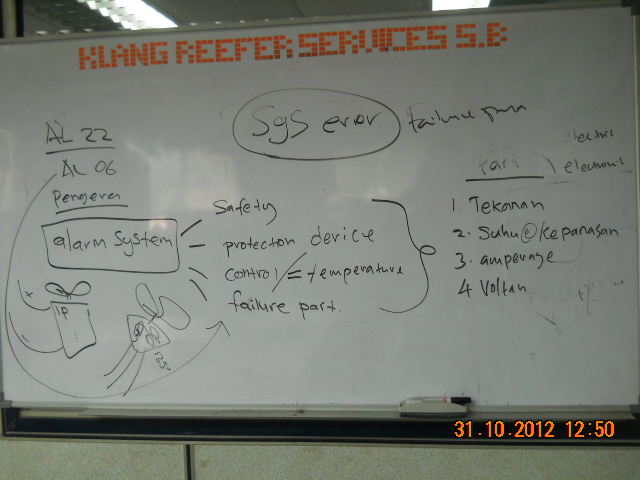 KLANG REEFER SERVICES S.B
Sys error failure
AL 22
AL 06
alarm system
Safety
protection device
control = temperature
failure part.
electronic
1 Tekanan
2. Suhu @ kepanasan
3. amperage
4 Voltan
IP
31.10.2012 12:50